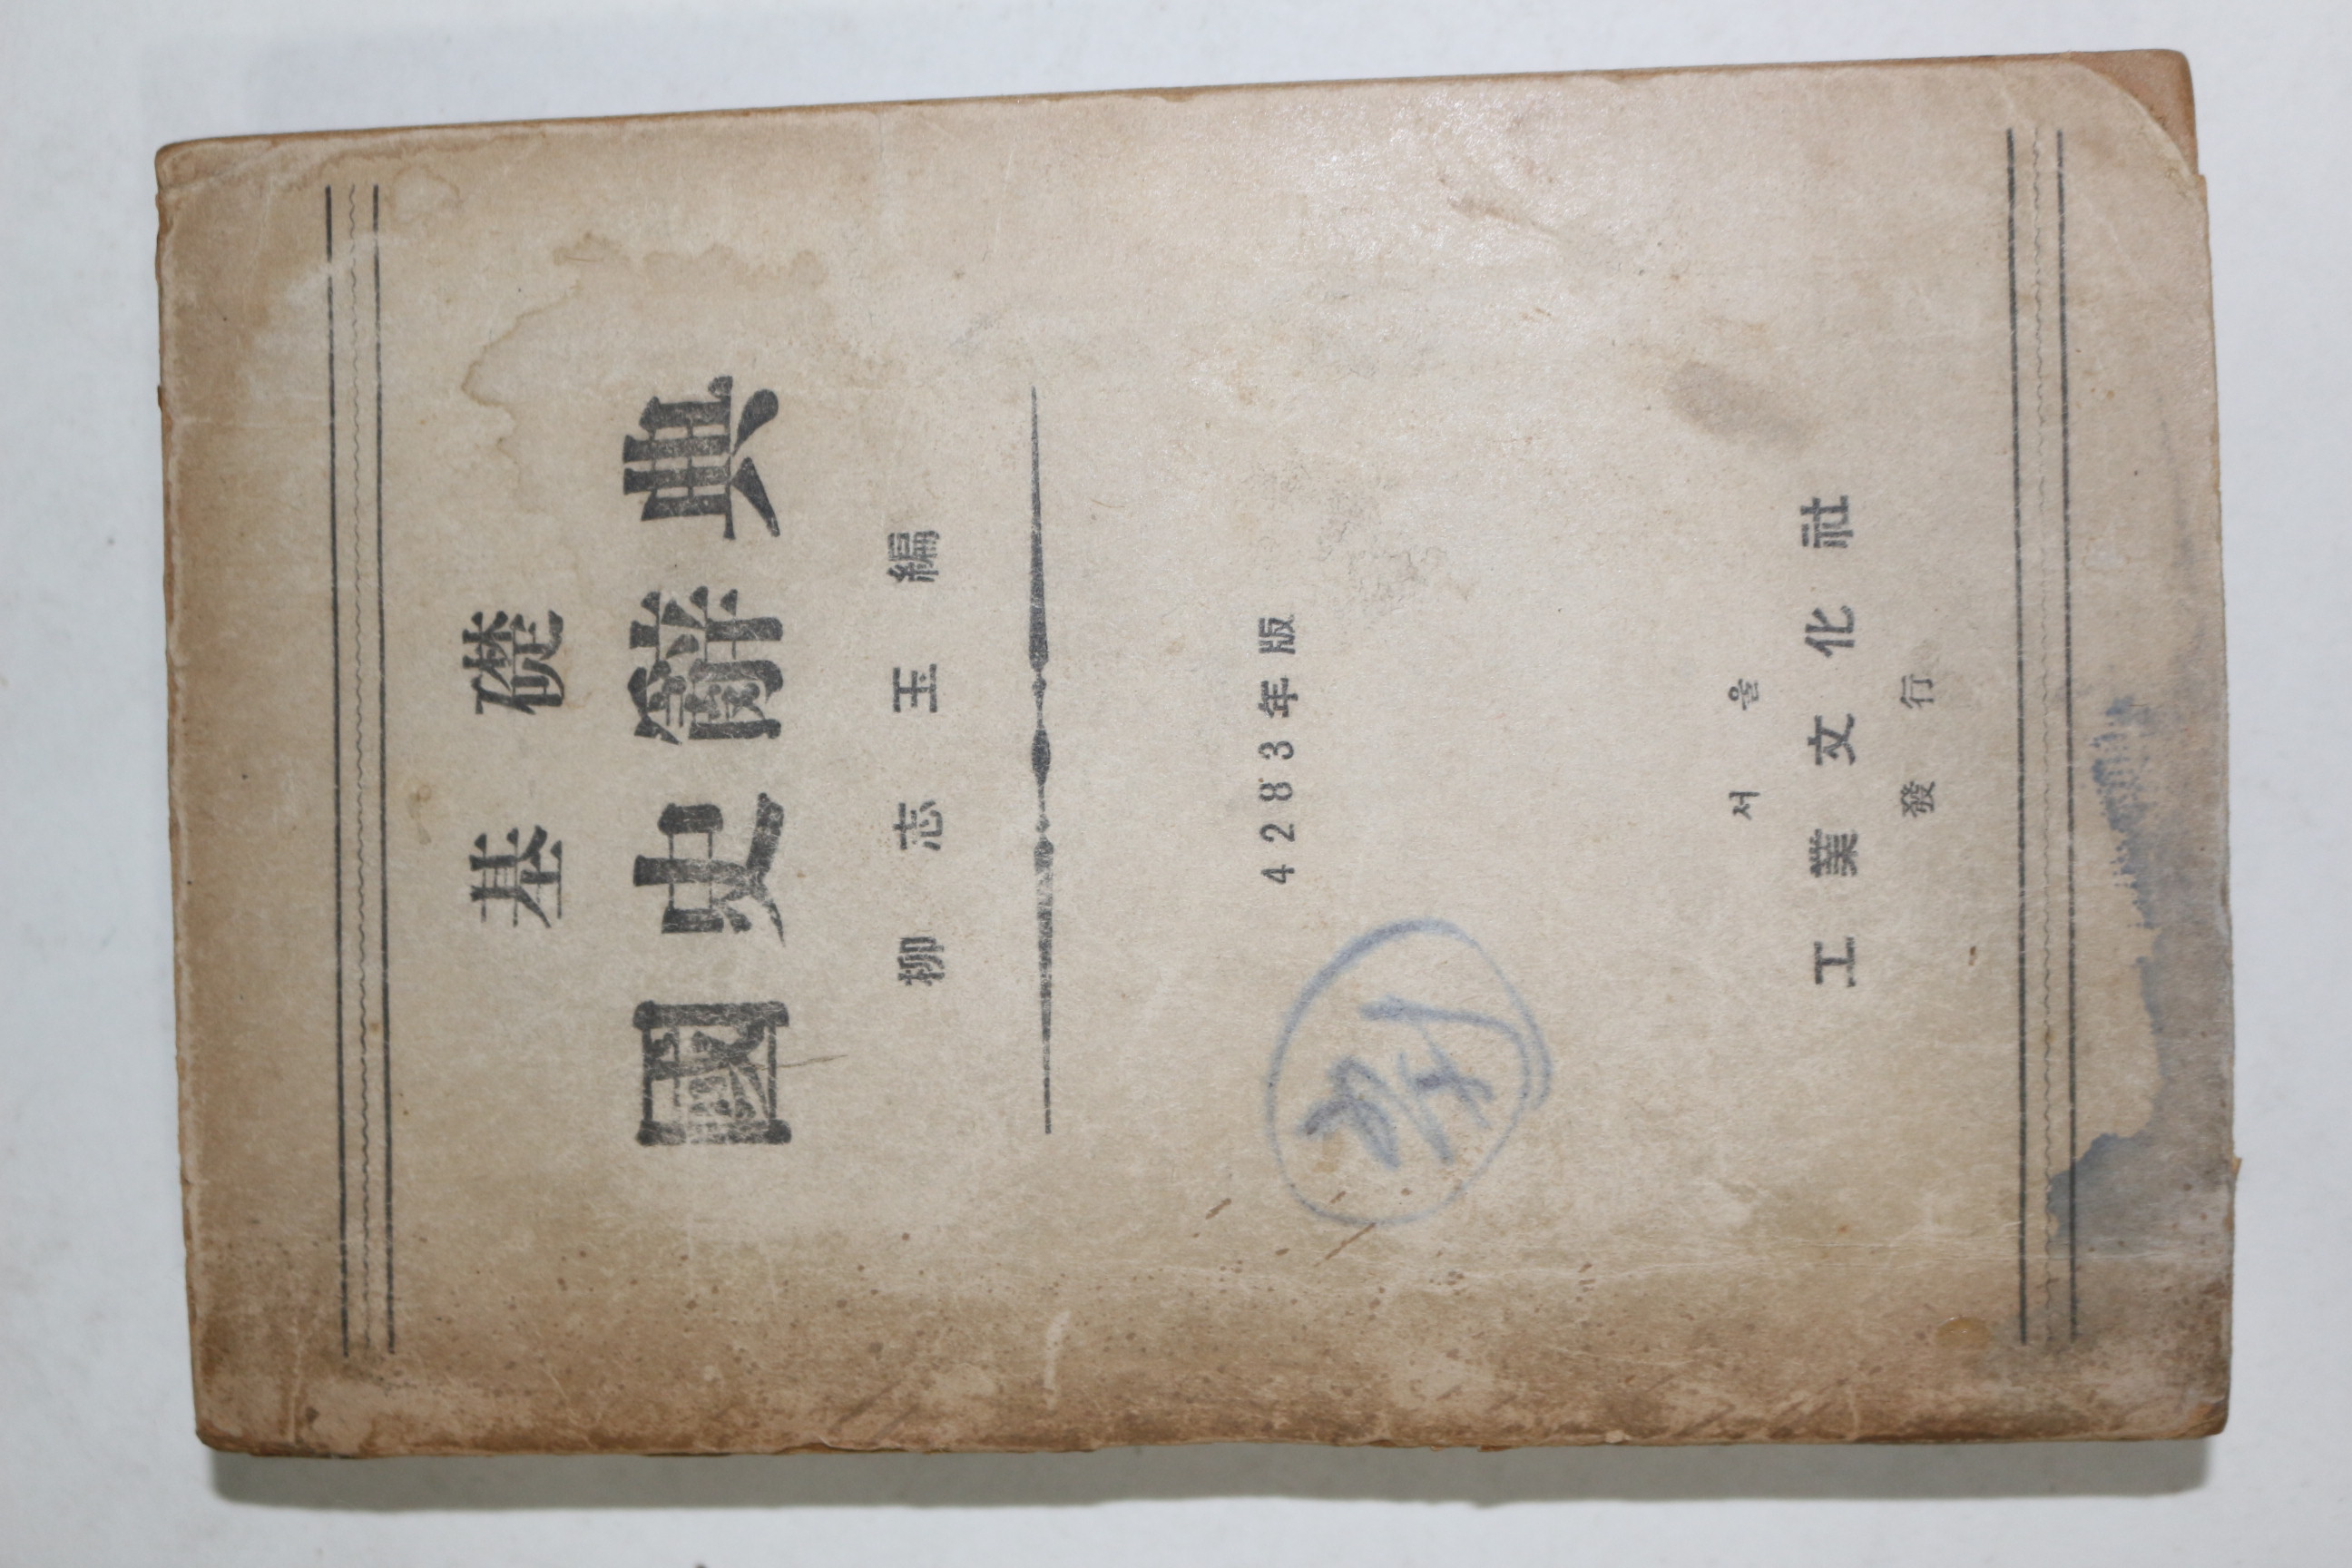 基礎
國史辭典
柳志玉編
4283年版
서울
工業文化社
發行